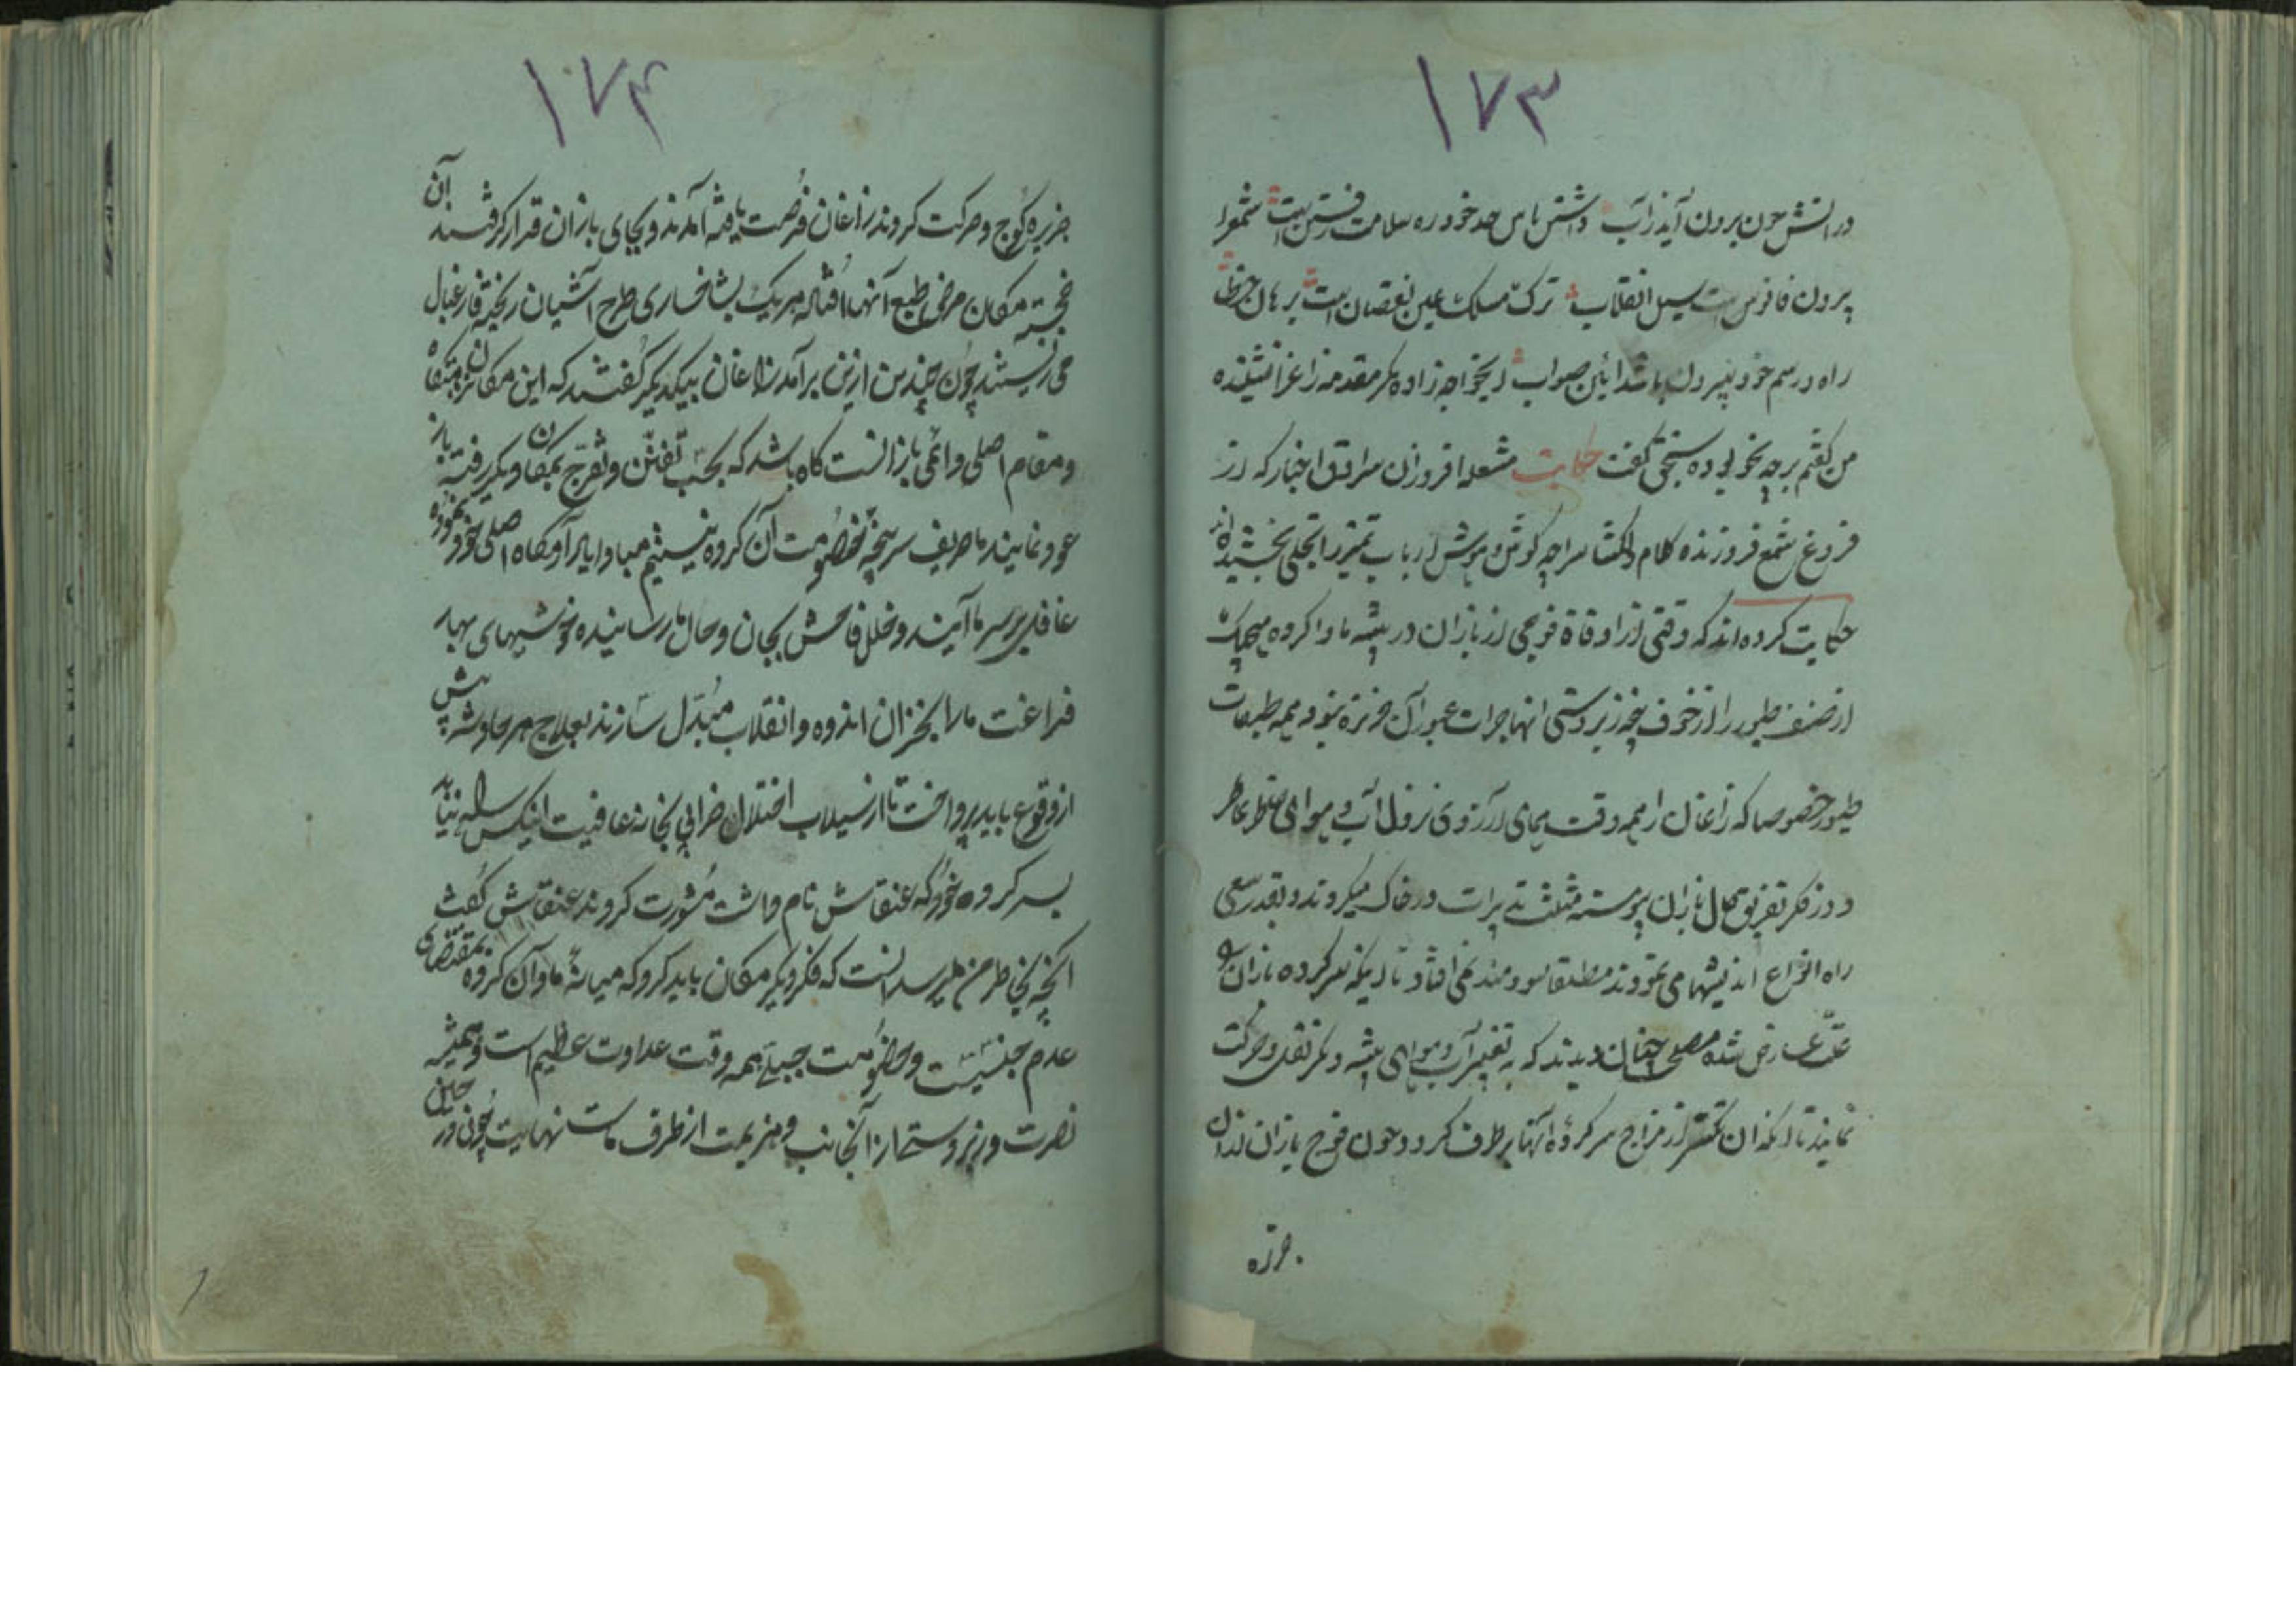 ۱۷۳
در آتش چون برون آید ز آب داشتن پاس حد خود در ره سلامت رفتن است شمع را
برون فانوس است سیل انقلاب ترک مسلک عین نقصان است برهان خطا
راه و رسم خود نبردن باشد آئین صواب ای خواجه زاده مگر مقدمه زاغ نشنیده
من گفتم بر چه نحو بوده سنجی گفت حکایت مشعله افروزان سرادق اخبار که از
فروغ شمع فروزنده کلام دلکشا سراچه گوش و هوش ارباب تمیز را تجلی بخشیده اند
حکایت کرده اند که وقتی از اوقاة فوجی از بازان در بیشه ماوا کرده هیچیک
از صنف طیور را از خوف پنجه زبردستی انها جرات عبور آن جزیره نبود همه طبقات
طیور خصوصا که زاغان را همه وقت همای آرزوی نزول آب و هوای خاطر
و در فکر تفریق حال بازان پیوسته در خاک میکردند و بقدر سعی
راه انواع اندیشها می نمودند مطلقا سودمند نمی افتاد تا اینکه سرکرده بازان را
علت عارض شده مصلحت چنان دیدند که به تغییر آب و هوای بیشه دیگر نقل و حرکت
نمایند تا انکه ان تکسر از مزاج سرکرده آنها برطرف کردد چون فوج بازان ازان
جزیره
۱۷۴
جزیره کوچ و حرکت کردند زاغان فرصت یافته آمدند و بجای بازان قرار گرفتند آن
خجسته مکان مرضی طبع آنها افتاده هر یک بشاخساری طرح آشیان ریخته فارغبال
می زیستند چون چندین ازین برآمد زاغان بیکدیگر گفتند که این مکان نزهتگاه
و مقام اصلی و دائمی بازانست گاه باشد که بحسب تفنن و تفرج بمکان دیگر رفته باز
عود نمایند ما حریف سرپنجه خصومت آن گروه نیستیم مبادا با آرامگاه اصلی خود نموده
غافل بر سر ما آیند و خلل فاحش بجان و حال ما رسانیده خوشیهای بهار
فراغت ما را بخزان اندوه و انقلاب مبدل سازند بعلاج هر حادثه پیش
از وقوع باید پرداخت تا از سیلاب اختلال خرابی بخانه عافیت اینکس راه نیابد
بسر کرده خود که عنقاش نام داشت مشورت کردند عنقاش گفت
انچه بخاطر من میرسد انست که فکر دیگر مکان باید کرد که میانهٔ ما و آن گروه بمقتضای
عدم جنسیت و خصومت جبلی همه وقت عداوت عظیم است و همیشه
نصرت و زبردستی از آنجانب و هزیمت از طرف ماست نهایت چون در حین